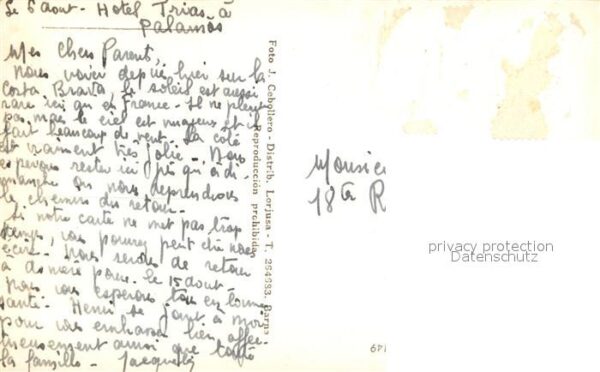 Le 6 août - Hotel Trias à
Palamós
Mes chers Parents,
Nous voici depuis hier sur la
Costa Brava, le soleil est aussi
rare ici qu'en France. Il ne pleut
pas mais le ciel est nuageux et il
fait beaucoup de vent. La côte
est vraiment très jolie. Nous
espérons rester ici jusqu'à di
manche où nous reprendrons
le chemin du retour.
Si notre carte ne met pas trop
temps, vous pourrez peut être nous
écrire. Nous serons de retour
à demeure pour le 15 août.
Nous vous espérons tous en bonne
santé. Henri se joint à moi
pour vous embrasser bien affec
tueusement ainsi que toute
la famille. Jacqueline
Foto J. Cebollero - Distrib. Lorjusa - T. 254633. Barna
Reproducción prohibida
Monsieu
18 R
privacy protection
Datenschutz